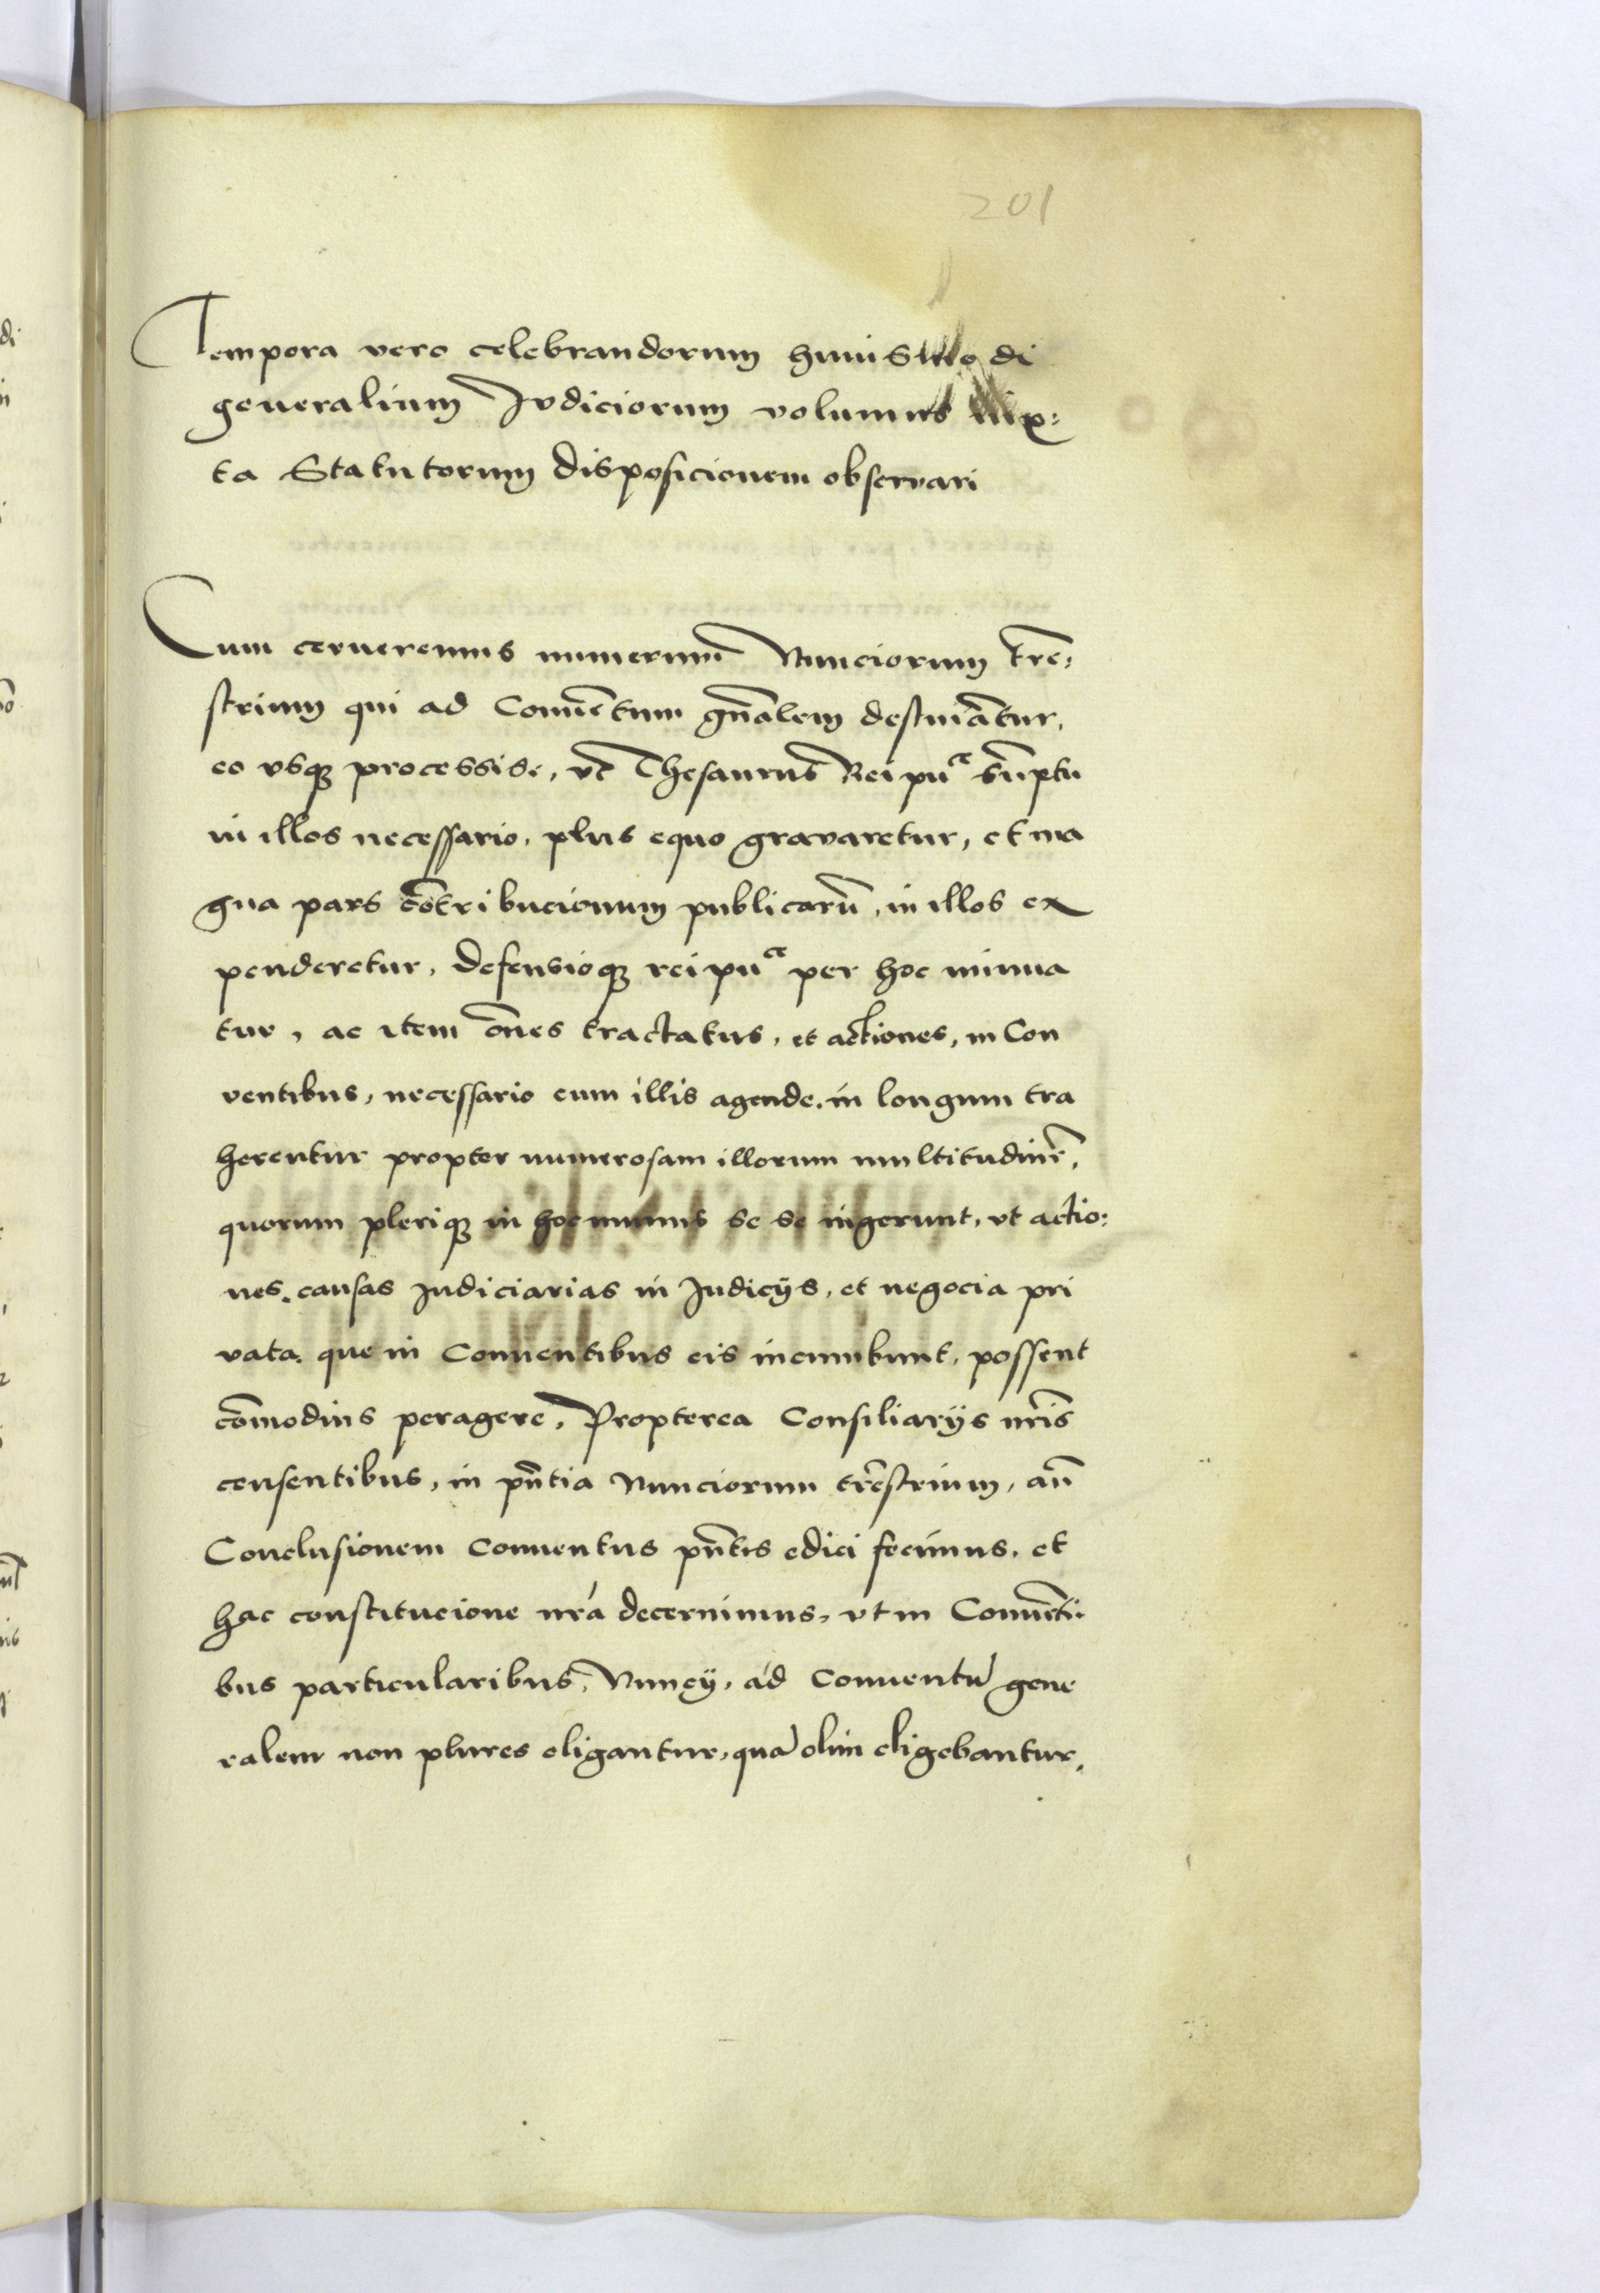 201
Tempora vero celebrandorum huiusmodi
generalium Judiciorum volumus iux:
ta Statutorum disposicionem observari
Cum cerneremus numerum Nunciorum trē:
strium qui ad Conuētum gn̄alem destinātur,
eo vsqꝫ processisse, vt Thesaurus Rei puᶜᵉ sūptu
in illos necessario, plus equo gravaretur, et ma
gna pars cōtribucionum publicarū, in illos ex
penderetur, defensioqꝫ rei puᶜᵉ per hoc minua
tur, ac item om̄es tractatus, et actiones, in Con
ventibus, necessario cum illis agende, in longum tra
herentur propter numerosam illorum multitudinē,
quorum pleriqꝫ in hoc munus se se ingerunt, vt actio:
nes, causas Judiciarias in Judicijs, et negocia pri
vata, que in Conuentibus eis incumbunt, possent
cōmodius peragere, Propterea Consiliarijs nr̄is
censentibus, in pn̄tia Nunciorum trēstrium, an̄
Conclusionem Conuentus pn̄tis edici fecimus, et
hac constitucione nr̄a decernimus, vt in Conuēti:
bus particularibus, Nuncij, ad Conuentū gene
ralem non plures eligantur, quā olim eligebantur,